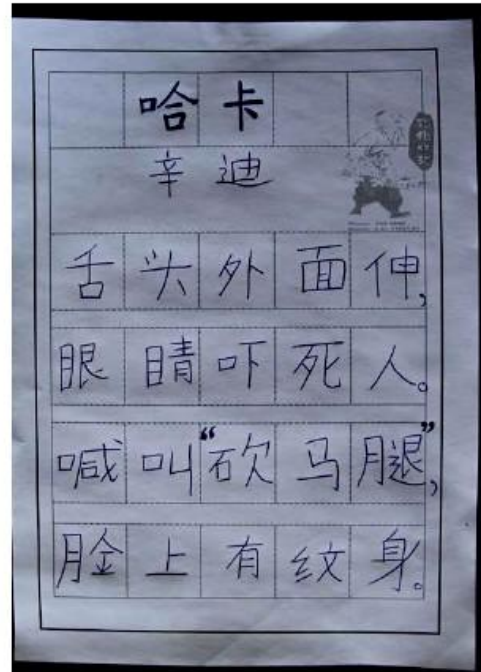 哈卡
辛迪
舌头外面伸,
眼睛吓死人。
喊叫“砍马腿”,
脸上有纹身。